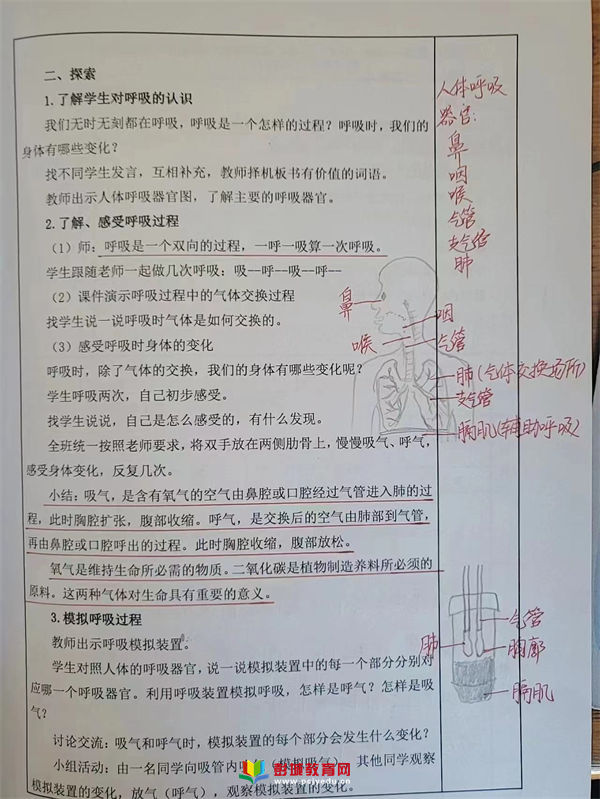 二、探索
1.了解学生对呼吸的认识
我们无时无刻都在呼吸，呼吸是一个怎样的过程？呼吸时，我们的
身体有哪些变化？
找不同学生发言，互相补充，教师择机板书有价值的词语。
教师出示人体呼吸器官图，了解主要的呼吸器官。
2.了解、感受呼吸过程
（1）师：呼吸是一个双向的过程，一呼一吸算一次呼吸。
学生跟随老师一起做几次呼吸：吸--呼--吸--呼--
（2）课件演示呼吸过程中的气体交换过程
找学生说一说呼吸时气体是如何交换的。
（3）感受呼吸时身体的变化
呼吸时，除了气体的交换，我们的身体有哪些变化呢？
学生呼吸两次，自己初步感受。
找学生说说，自己是怎么感受的，有什么发现。
全班统一按照老师要求，将双手放在两侧肋骨上，慢慢吸气、呼气，
感受身体变化，反复几次。
小结：吸气，是含有氧气的空气由鼻腔或口腔经过气管进入肺的过
程，此时胸腔扩张，腹部收缩。呼气，是交换后的空气由肺部到气管，
再由鼻腔或口腔呼出的过程。此时胸腔收缩，腹部放松。
氧气是维持生命所必需的物质。二氧化碳是植物制造养料所必须的
原料。这两种气体对生命具有重要的意义。
3.模拟呼吸过程
教师出示呼吸模拟装置。
学生对照人体的呼吸器官，说一说模拟装置中的每一个部分分别对
应哪一个呼吸器官。利用呼吸装置模拟呼吸，怎样是呼气？怎样是吸
气？
讨论交流：吸气和呼气时，模拟装置的每个部分会发生什么变化？
小组活动：由一名同学向吸管内吹气（模拟吸气） 其他同学观察
模拟装置的变化，放气（呼气），观察模拟装置的变化。
人体呼吸
器官：
鼻
咽
喉
气管
支气管
肺
鼻
咽
喉
气管
肺（气体交换场所）
支气管
膈肌（辅助呼吸）
气管
肺
胸廓
膈肌
彭璇教育网
www.pcjyedu.cn